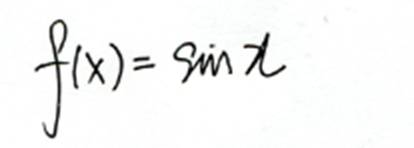 f(x) = sin x